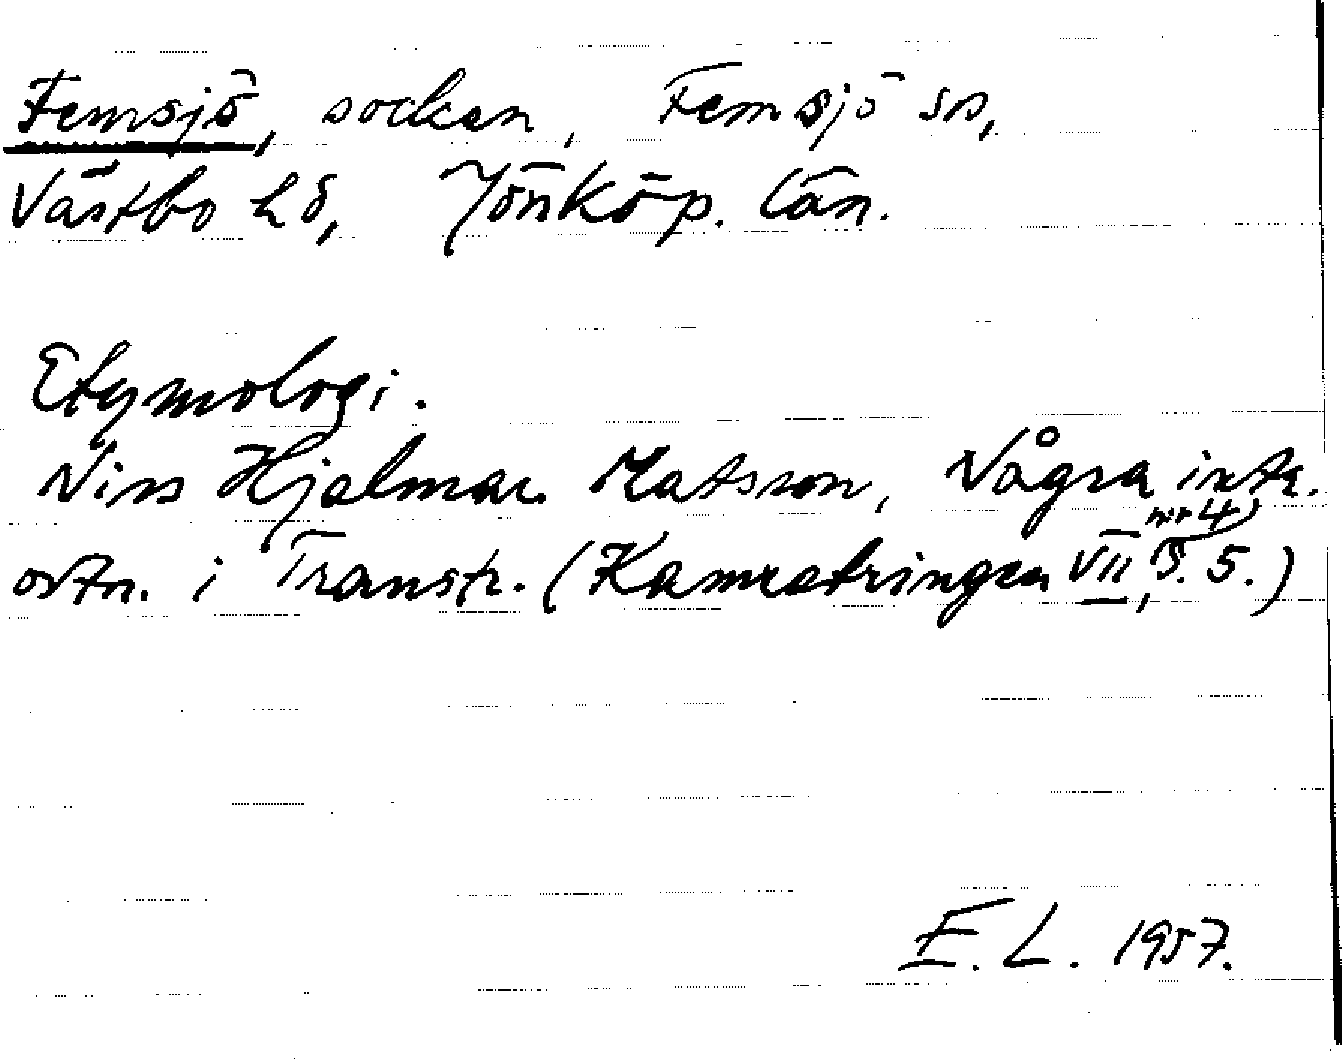 Femsjö, socken, Femsjö sn,
Västbo hd, Jönköp. län.
Etymologi.
Nils Hjalmar Matsson, Några intr.
ortn. i Transtr. (Kamratringen VII, nr 4, S. 5.)
E. L. 1957.